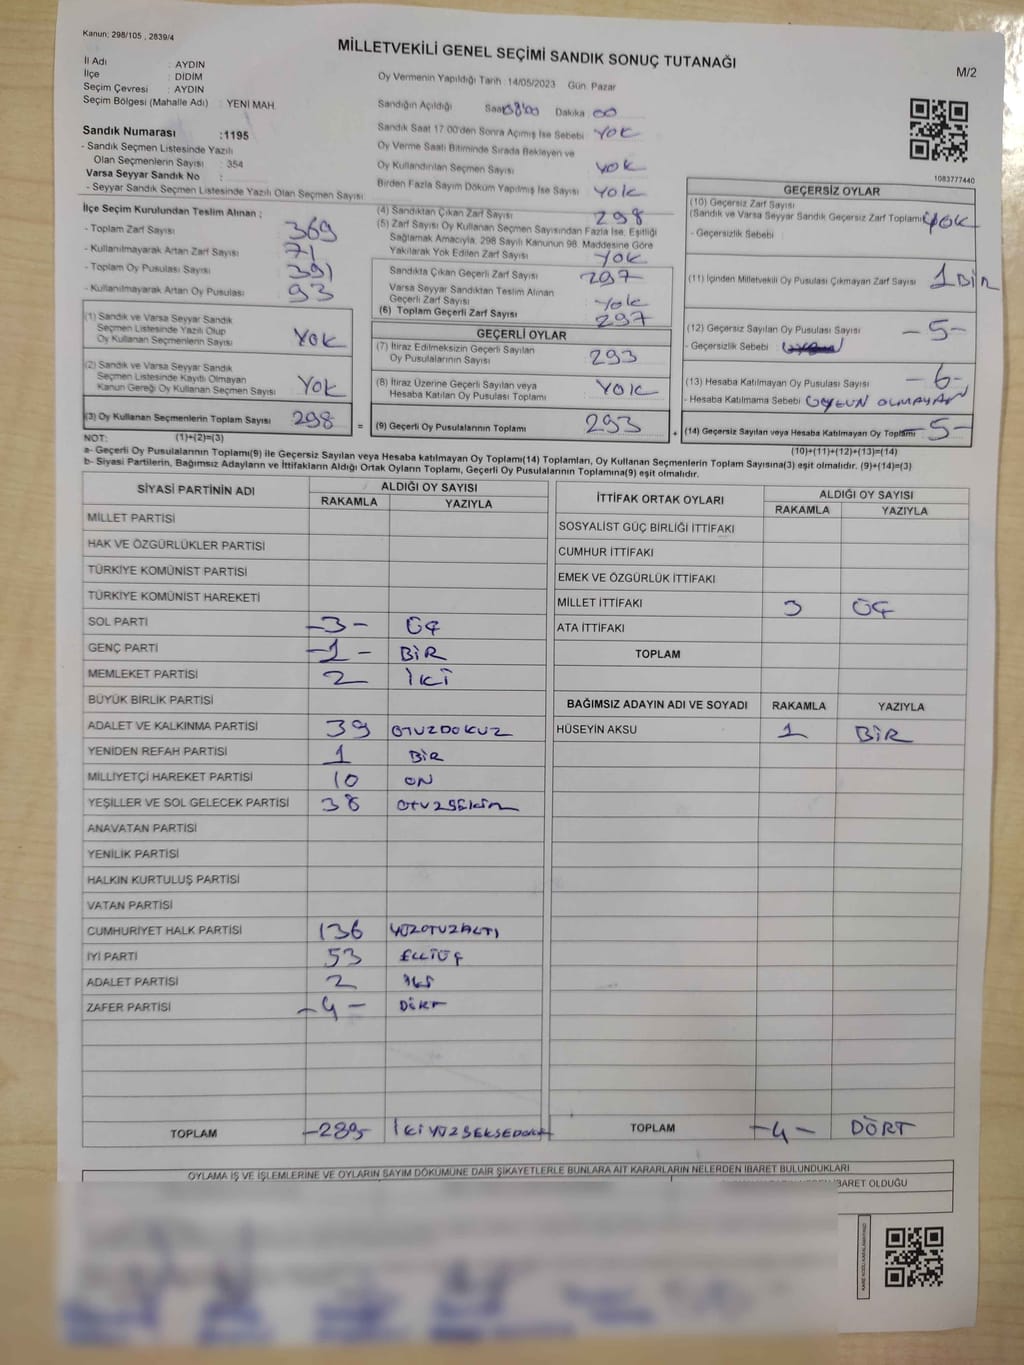 Kanun: 298/105 , 2839/4
MİLLETVEKİLİ GENEL SEÇİMİ SANDIK SONUÇ TUTANAĞI
M/2
İl Adı : AYDIN
İlçe : DİDİM
Seçim Çevresi : AYDIN
Seçim Bölgesi (Mahalle Adı) : YENİ MAH.
Sandık Numarası :1195
- Sandık Seçmen Listesinde Yazılı
Olan Seçmenlerin Sayısı : 354
Varsa Seyyar Sandık No :
- Seyyar Sandık Seçmen Listesinde Yazılı Olan Seçmen Sayısı
Oy Vermenin Yapıldığı Tarih :14/05/2023 Gün: Pazar
Sandığın Açıldığı Saat 08:00 Dakika 00
Sandık Saat 17:00'den Sonra Açımış İse Sebebi YOK
Oy Verme Saati Bitiminde Sırada Bekleyen ve
Oy Kullandırılan Seçmen Sayısı YOK
Birden Fazla Sayım Döküm Yapılmış İse Sayısı YOK
1083777440
İlçe Seçim Kurulundan Teslim Alınan ;
- Toplam Zarf Sayısı 369
- Kullanılmayarak Artan Zarf Sayısı 71
- Toplam Oy Pusulası Sayısı 391
- Kullanılmayarak Artan Oy Pusulası 93
(1) Sandık ve Varsa Seyyar Sandık
Seçmen Listesinde Yazılı Olup
Oy Kullanan Seçmenlerin Sayısı YOK
(2) Sandık ve Varsa Seyyar Sandık
Seçmen Listesinde Kayıtlı Olmayan
Kanun Gereği Oy Kullanan Seçmen Sayısı YOK
(3) Oy Kullanan Seçmenlerin Toplam Sayısı 298 =
(4) Sandıktan Çıkan Zarf Sayısı 298
(5) Zarf Sayısı Oy Kullanan Seçmen Sayısından Fazla İse, Eşitliği
Sağlamak Amacıyla, 298 Sayılı Kanunun 98. Maddesine Göre
Yakılarak Yok Edilen Zarf Sayısı YOK
Sandıkta Çıkan Geçerli Zarf Sayısı 297
Varsa Seyyar Sandıktan Teslim Alınan
Geçerli Zarf Sayısı YOK
(6) Toplam Geçerli Zarf Sayısı 297
GEÇERLİ OYLAR
(7) İtiraz Edilmeksizin Geçerli Sayılan
Oy Pusulalarının Sayısı 293
(8) İtiraz Üzerine Geçerli Sayılan veya
Hesaba Katılan Oy Pusulası Toplamı YOK
(9) Geçerli Oy Pusulalarının Toplamı 293 +
GEÇERSİZ OYLAR
(10) Geçersiz Zarf Sayısı
(Sandık ve Varsa Seyyar Sandık Geçersiz Zarf Toplamı) YOK
- Geçersizlik Sebebi
(11) İçinden Milletvekili Oy Pusulası Çıkmayan Zarf Sayısı 1 BİR
(12) Geçersiz Sayılan Oy Pusulası Sayısı -5-
- Geçersizlik Sebebi
(13) Hesaba Katılmayan Oy Pusulası Sayısı -6-
- Hesaba Katılmama Sebebi UYGUN OLMAYAN
(14) Geçersiz Sayılan veya Hesaba Katılmayan Oy Toplamı -5-
NOT: (1)+(2)=(3) (10)+(11)+(12)+(13)=(14)
a- Geçerli Oy Pusulalarının Toplamı(9) ile Geçersiz Sayılan veya Hesaba katılmayan Oy Toplamı(14) Toplamları, Oy Kullanan Seçmenlerin Toplam Sayısına(3) eşit olmalıdır. (9)+(14)=(3)
b- Siyasi Partilerin, Bağımsız Adayların ve İttifakların Aldığı Ortak Oyların Toplamı, Geçerli Oy Pusulalarının Toplamına(9) eşit olmalıdır.
SİYASİ PARTİNİN ADI ALDIĞI OY SAYISI
RAKAMLA YAZIYLA
MİLLET PARTİSİ
HAK VE ÖZGÜRLÜKLER PARTİSİ
TÜRKİYE KOMÜNİST PARTİSİ
TÜRKİYE KOMÜNİST HAREKETİ
SOL PARTİ -3- ÜÇ
GENÇ PARTİ -1- BİR
MEMLEKET PARTİSİ 2 İKİ
BÜYÜK BİRLİK PARTİSİ
ADALET VE KALKINMA PARTİSİ 39 OTUZDOKUZ
YENİDEN REFAH PARTİSİ 1 BİR
MİLLİYETÇİ HAREKET PARTİSİ 10 ON
YEŞİLLER VE SOL GELECEK PARTİSİ 38 OTUZSEKİZ
ANAVATAN PARTİSİ
YENİLİK PARTİSİ
HALKIN KURTULUŞ PARTİSİ
VATAN PARTİSİ
CUMHURİYET HALK PARTİSİ 136 YÜZOTUZALTI
İYİ PARTİ 53 ELLİÜÇ
ADALET PARTİSİ 2 İKİ
ZAFER PARTİSİ -4- DÖRT
TOPLAM -289-
İTTİFAK ORTAK OYLARI ALDIĞI OY SAYISI
RAKAMLA YAZIYLA
SOSYALİST GÜÇ BİRLİĞİ İTTİFAKI
CUMHUR İTTİFAKI
EMEK VE ÖZGÜRLÜK İTTİFAKI
MİLLET İTTİFAKI 3 ÜÇ
ATA İTTİFAKI
TOPLAM
BAĞIMSIZ ADAYIN ADI VE SOYADI RAKAMLA YAZIYLA
HÜSEYİN AKSU 1 BİR
TOPLAM -4- DÖRT
OYLAMA İŞ VE İŞLEMLERİNE VE OYLARIN SAYIM DÖKÜMÜNE DAİR ŞİKAYETLERLE BUNLARA AİT KARARLARIN NELERDEN İBARET BULUNDUKLARI
İBARET OLDUĞU
KARE KODU KARALAMAYINIZ